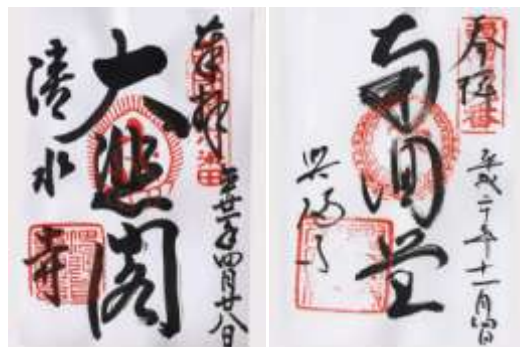 奉拝
四月廿八日
大悲閣
清水寺
奉拝
平成二十年十一月四日
南圓堂
興福寺